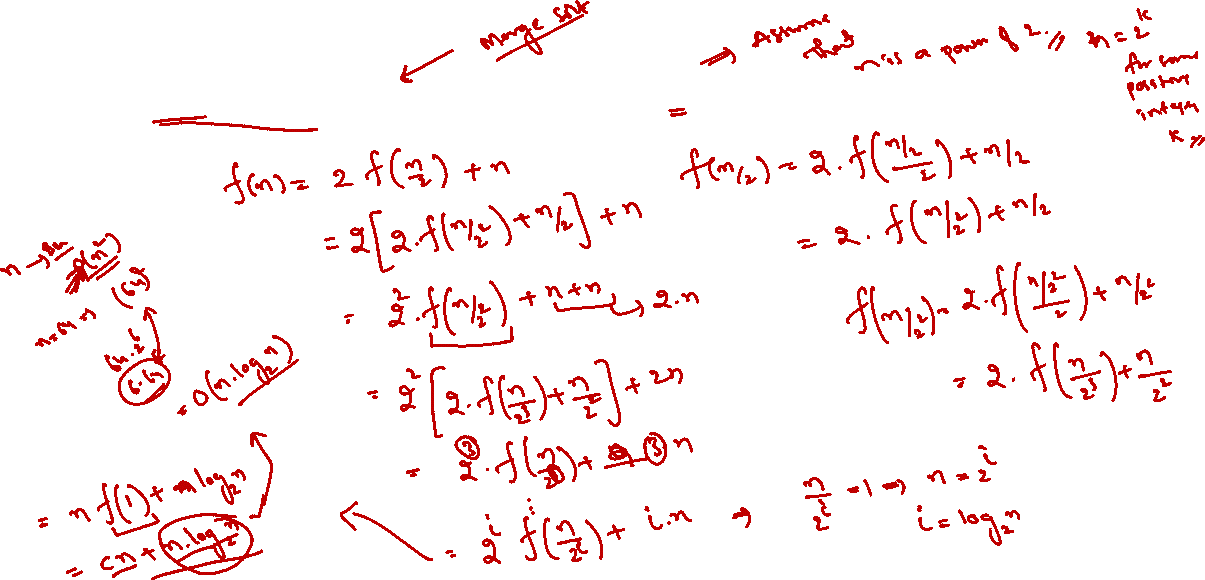 Merge sort
⇒ Assume that n is a power of 2. // n = 2^k
for some
positive
integer
k //
=
f(n) = 2 f(n/2) + n
= 2[2.f(n/2^2) + n/2] + n
= 2^2.f(n/2^2) + n+n → 2.n
= 2^2[2.f(n/2^3) + n/2^2] + 2n
= 2^3.f(n/2^3) + 3n
= 2^i f(n/2^i) + i.n ⇒ n/2^i = 1 ⇒ n = 2^i
i = log_2 n
f(n/2) = 2.f((n/2)/2) + n/2
= 2. f(n/2^2) + n/2
f(n/2^2) = 2.f((n/2^2)/2) + n/2^2
= 2. f(n/2^3) + n/2^2
= n f(1) + n log_2 n
= cn + n.log_2 n
= O(n.log_2 n)
O(n^2)
n=64 ⇒ (64)
6.64